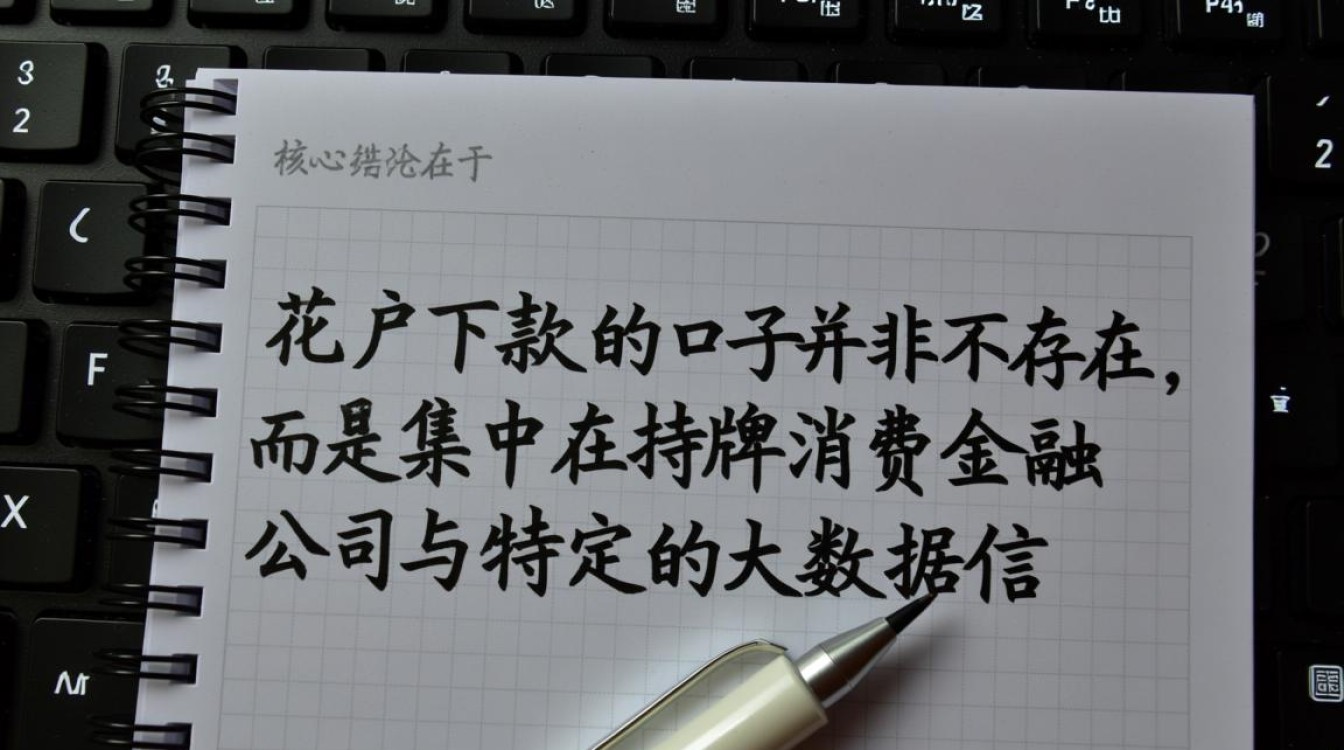 核心结论在于
花户下款的口子并非不存在，
而是集中在持牌消费金融
公司与特定的大数据信
3
2
2
F
X